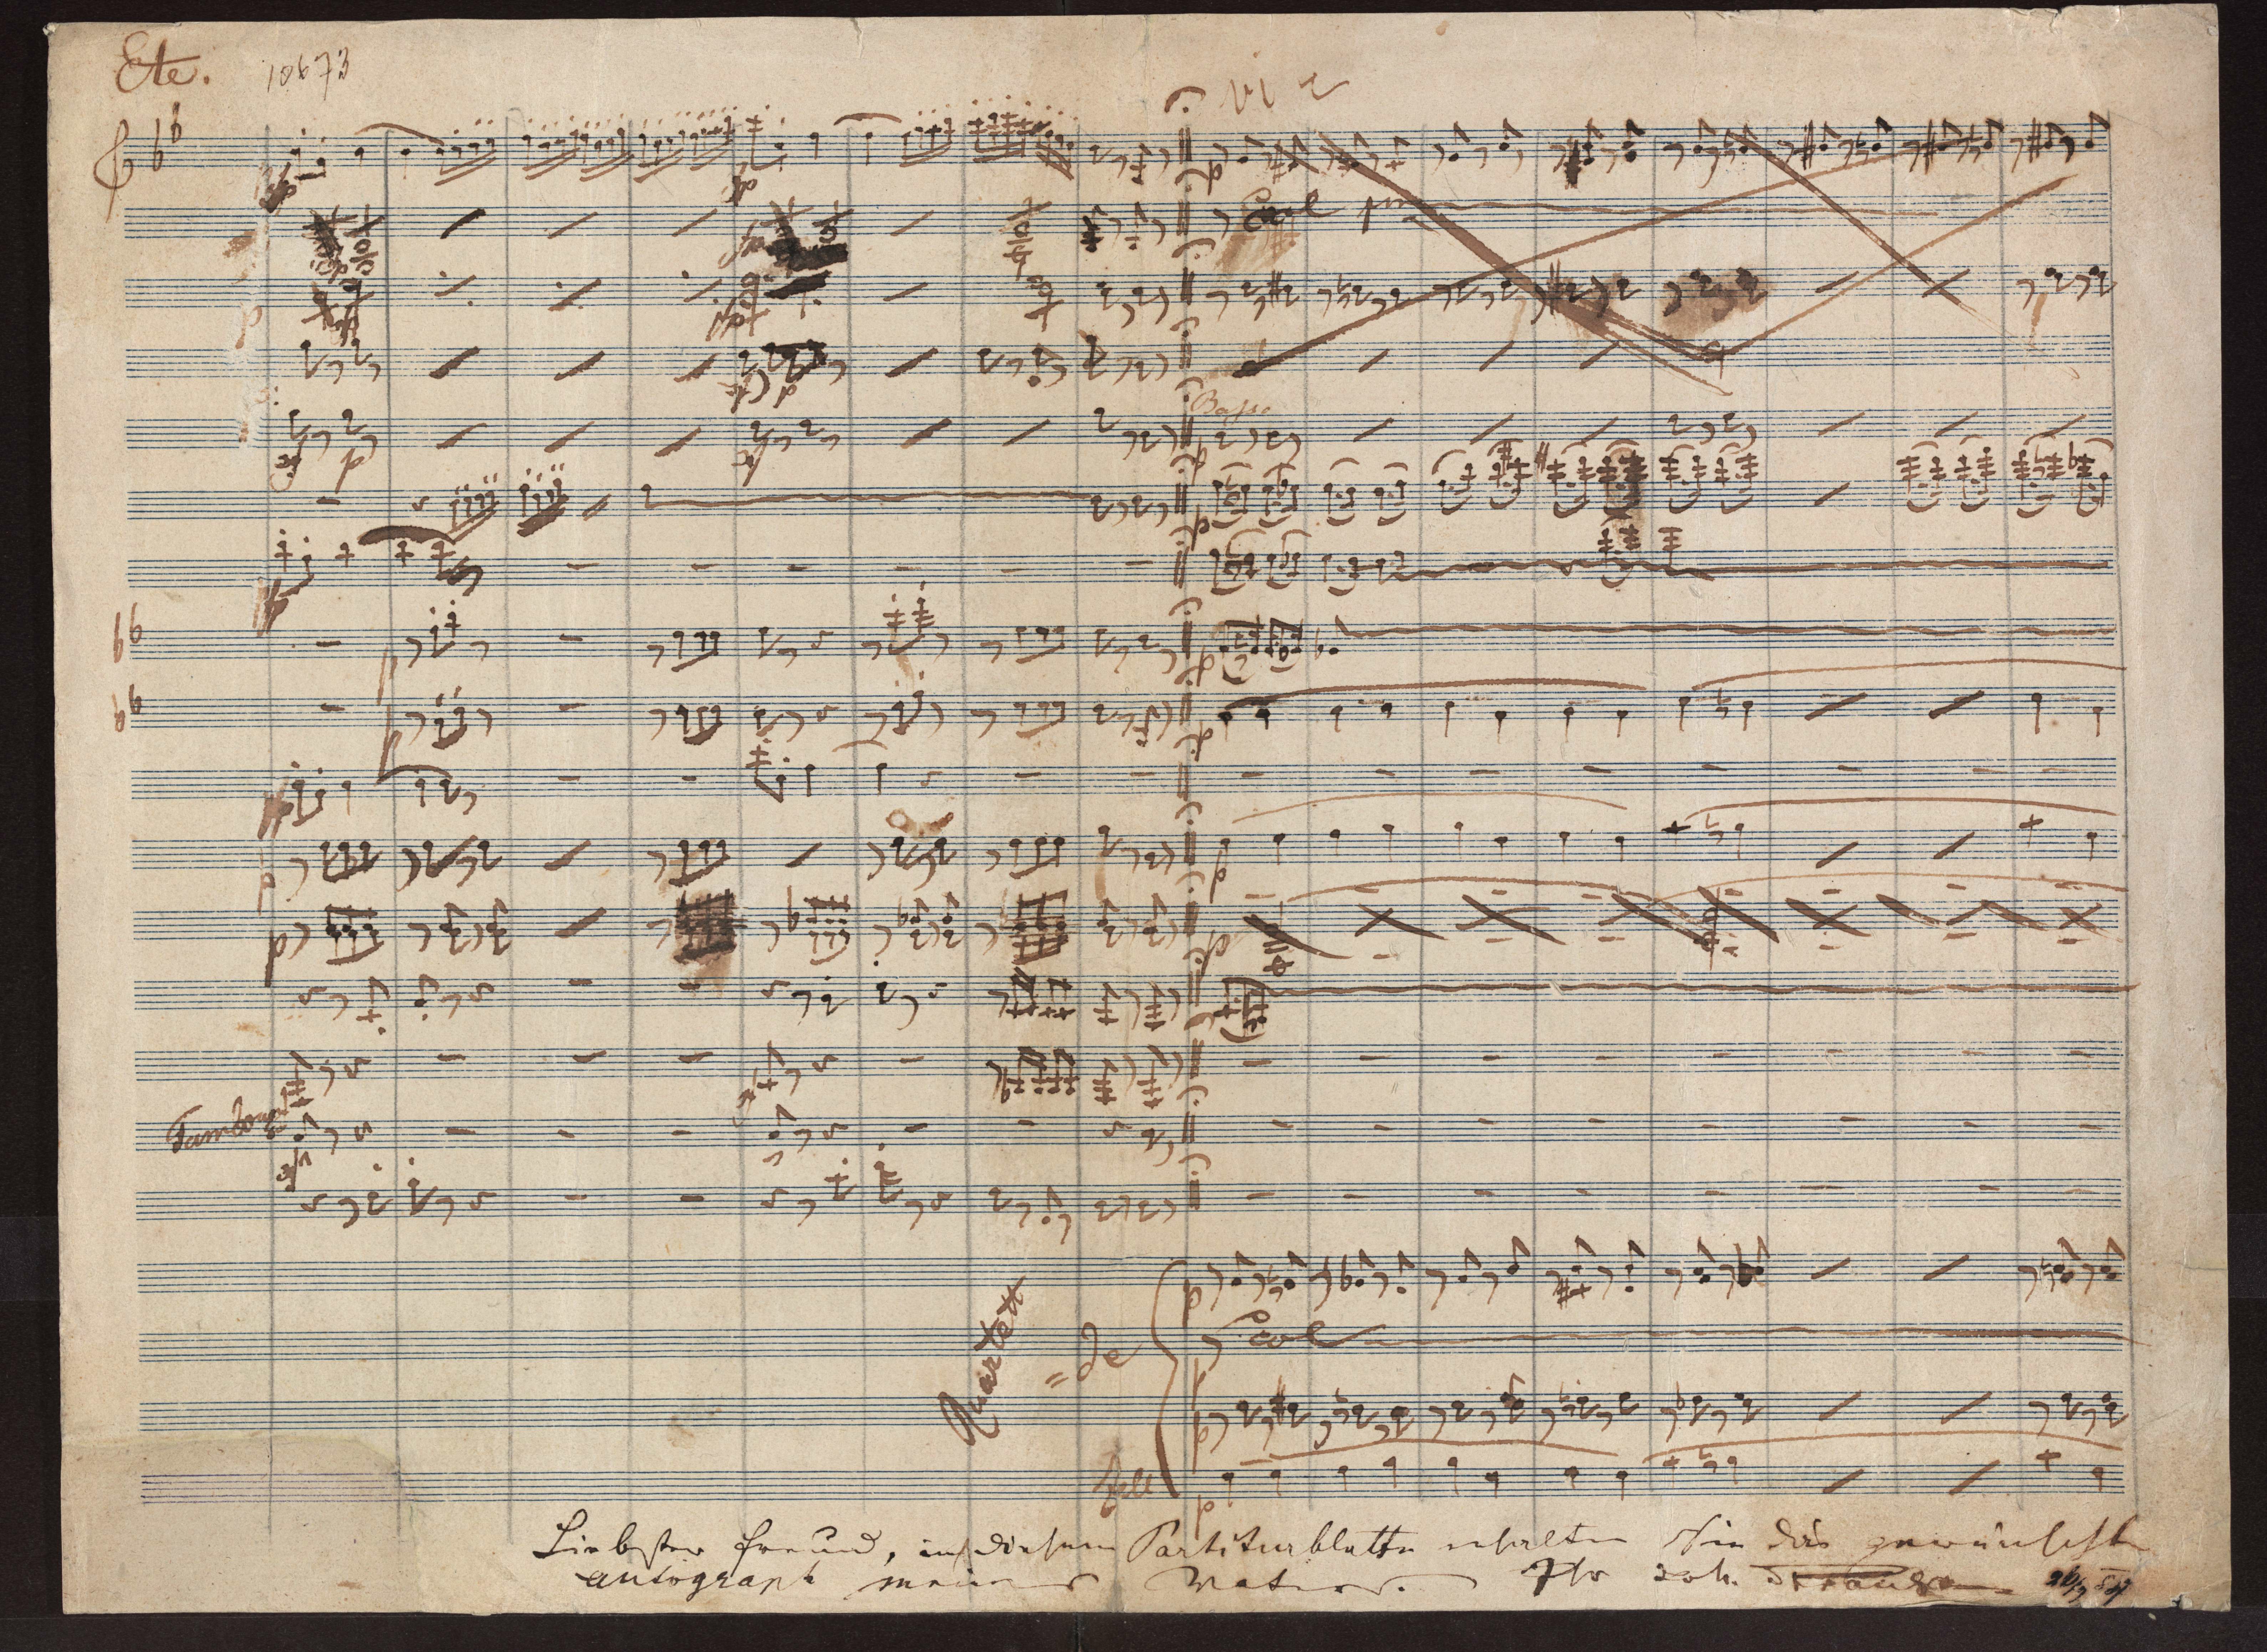 Ete.
10673
Tambour
Basso
Col
Quartett
Liebster Freund, in diesem Partiturblatte erhalten Sie das gewünschte
autograph meines Vaters. Ihr Joh. Strauss